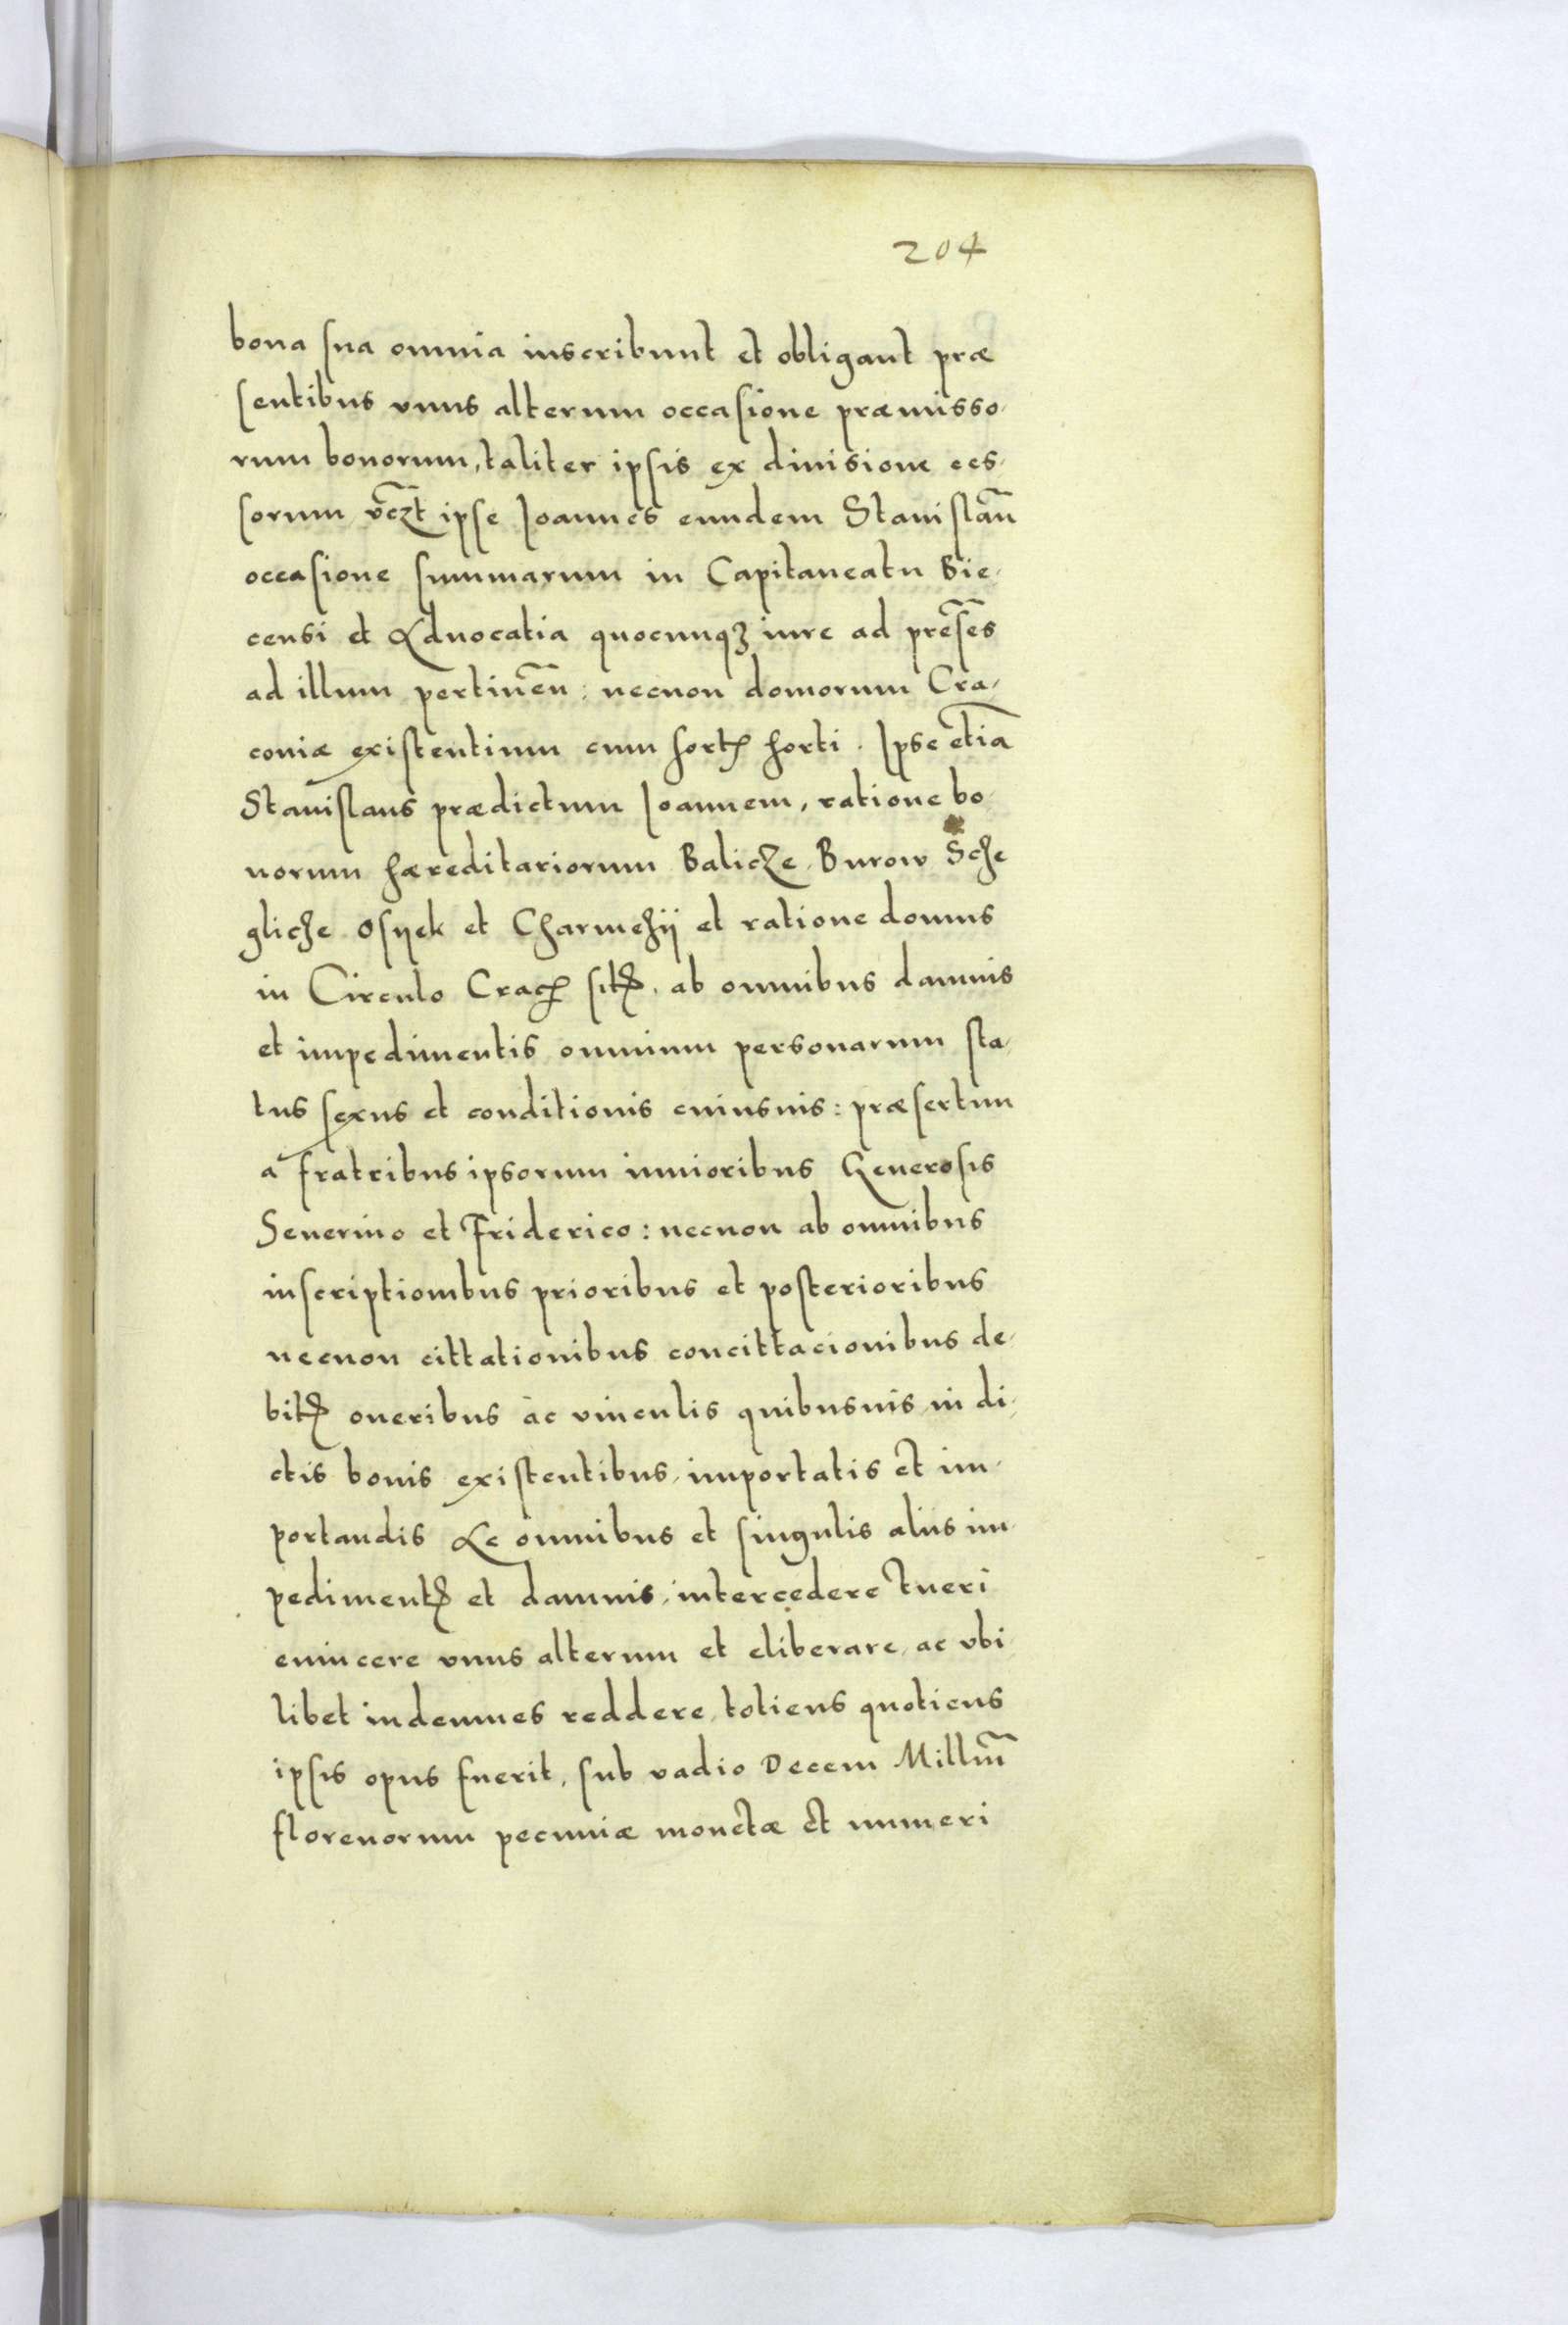 204
bona sua omnia inscribunt et obligant præ
sentibus vnus alterum occasione præmisso,
rum bonorum, taliter ipsis ex diuisione ces,
sorum včzt ipse Joannes eundem Stanislaū
occasione summarum in Capitaneatu Bie,
censi et Aduocatia quocunqʒ iure ad præn̄tes
ad illum pertinēn: necnon domorum Cra,
coniæ existentium cum sortꝭ horti. Ipse etiā
Stanislaus prædictum Joannem, ratione bo
norum hæreditariorum Balicze, Burow Scze
glicze Osyek et Charmezij et ratione domus
in Circulo Cracꝭ sitꝭ, ab omnibus damnis
et impedimentis omnium personarum sta,
tus sexus et conditionis cuiusuis: præsertim
a fratribus ipsorum iunioribus Generosis
Seuerino et Friderico: necnon ab omnibus
inscriptionibus prioribus et posterioribus
necnon cittationibus concittacionibus de,
bitꝭ oneribus ac vinculis quibusuis in di,
ctis bonis existentibus, importatis et im,
portandis Ac omnibus et singulis alijs im,
pedimentꝭ et damnis, intercedere tueri
euincere vnus alterum et eliberare, ac vbi
libet indemnes reddere, totiens quotiens
ipsis opus fuerit, sub vadio Decem Milliū
florenorum pecuniæ monetæ et numeri